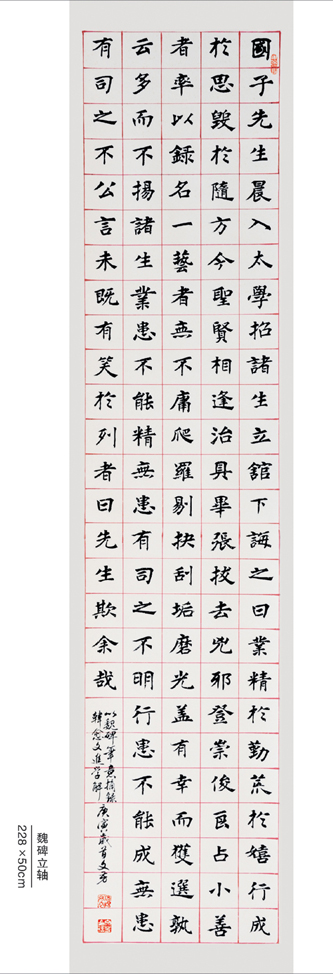 國子先生晨入太學招諸生立舘下誨之曰業精於勤荒於嬉行成
於思毀於隨方今聖賢相逢治具畢張拔去兇邪登崇俊良占小善
者率以録名一藝者無不庸爬羅剔抉刮垢磨光蓋有幸而獲選孰
云多而不揚諸生業患不能精無患有司之不明行患不能成無患
有司之不公言未既有笑於列者曰先生欺余哉
以魏碑筆意摘録
韓愈文進學解
庚寅歲首文君
魏碑立轴
228×50cm